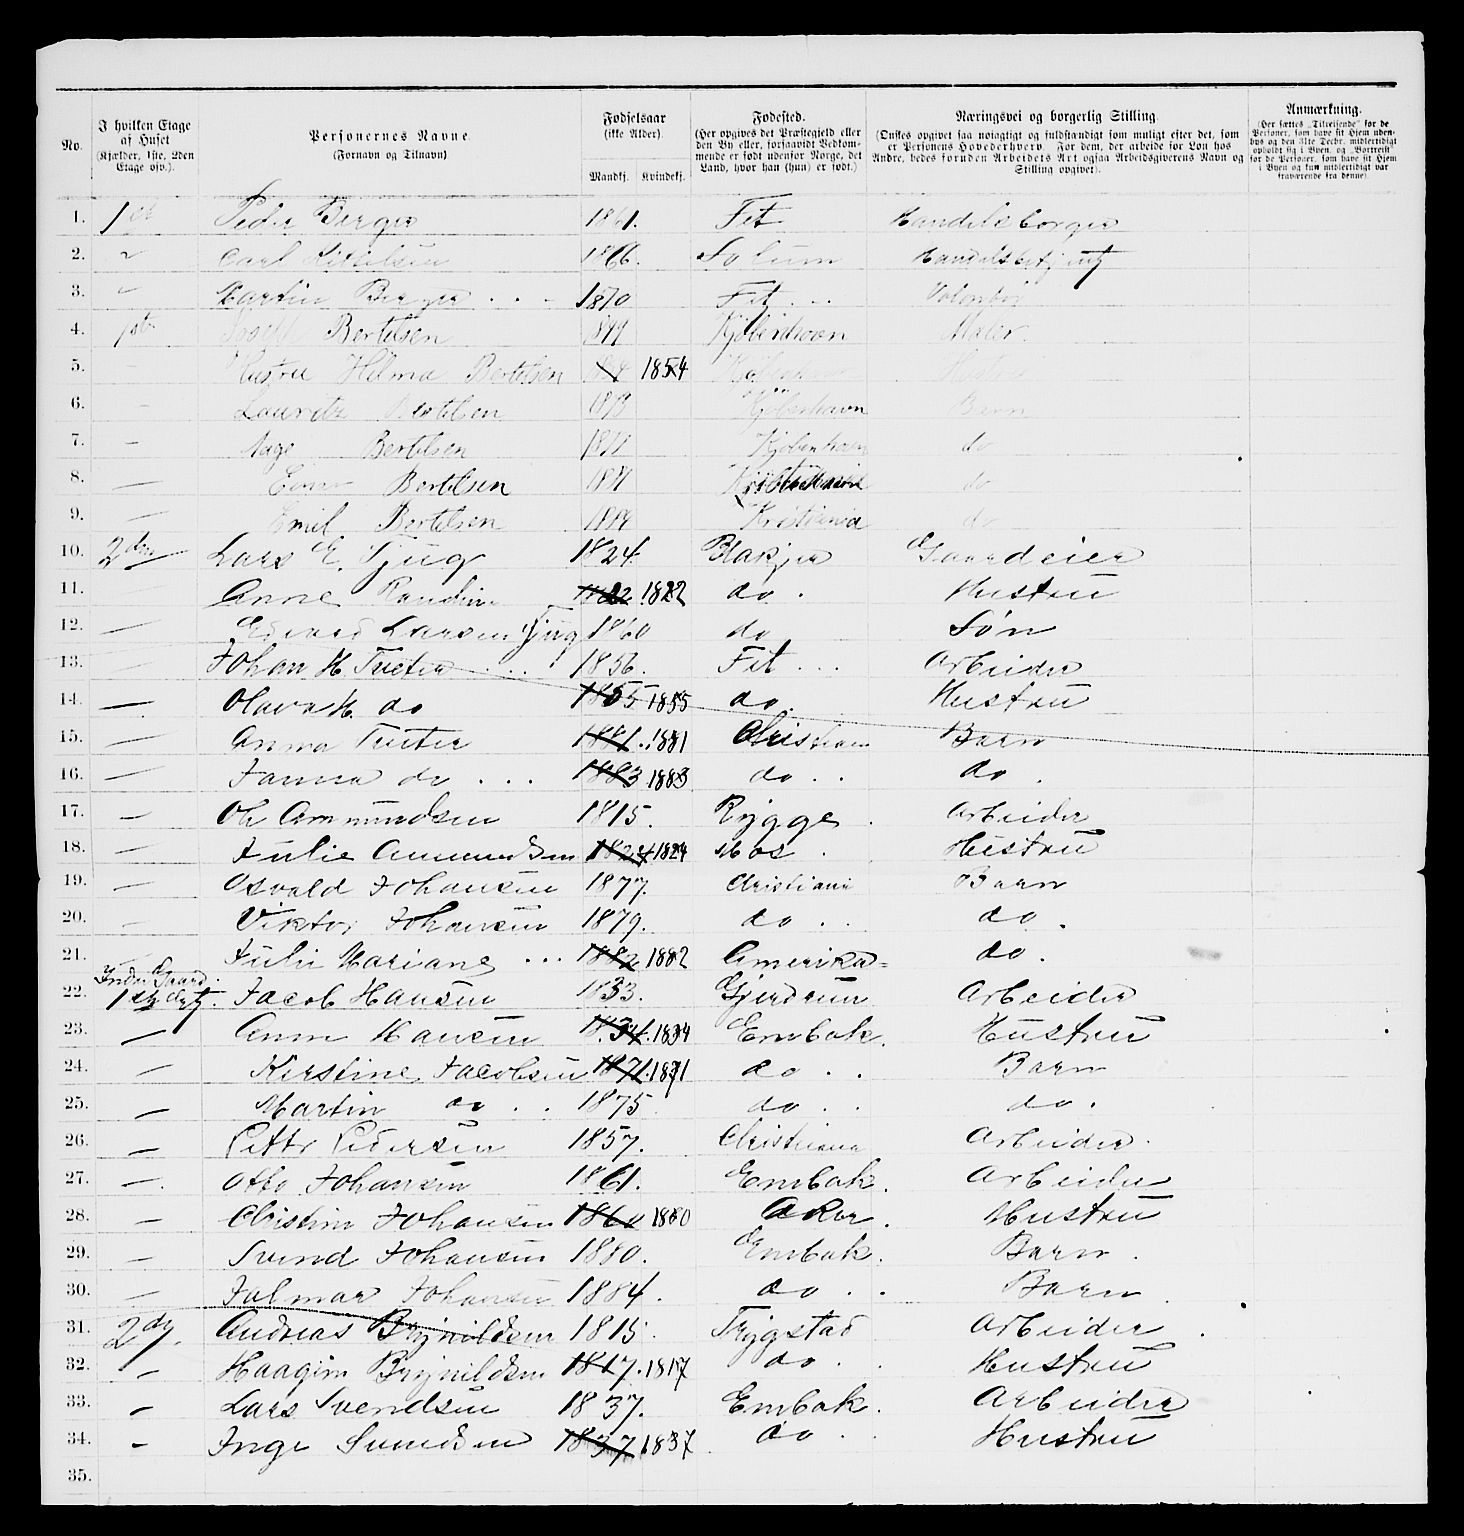 No.
I hvilken Etage af Huset (Kjælder, 1ste, 2den Etage osv.).
Personernes Navne. (Fornavn og Tilnavn)
Fødselsaar (ikke Alder). Mandkj. Kvindekj.
Fødested. (Her opgives det Præstegjeld eller den By eller, forsaavidt Vedkommende er født udenfor Norge, det Land, hvor han (hun) er født.)
Næringsvei og borgerlig Stilling. (Ønskes opgivet saa nøiagtigt og fuldstændigt som muligt efter det, som er Personens Hovederhverv. For dem, der arbeide for Løn hos Andre, bedes foruden Arbeidets Art ogsaa Arbeidsgiverens Navn og Stilling opgivet).
Anmærkning. (Her sættes „Tilreisende" for de Personer, som have sit Hjem udenbys og den 31te Decbr. midlertidigt opholdt sig i Byen, og „Bortreist" for de Personer, som have sit Hjem i Byen og kun midlertidigt var fraværende fra denne).
1. 1st Peder Berger 1861. Fet Handelsborger
2. Carl 1866. Solum Handelsbetjent
3. Martin Berger . . . 1870 Fet . . .
4. 1st Bertelsen Kjøbenhavn Maler.
5. Hustru Hilma Bertelsen 1854 Kjøbenhavn
6. Lauritz Bertelsen Kjøbenhavn Barn
7. Aage Bertelsen Kjøbenhavn do
8. Bertelsen do
9. Emil Bertelsen Kristiania do
10. 2den Lars E. Tjug 1824. Blakjer Gaardeier
11. Anne Randine 1822 1822 do . Hustru
12. Edvard Larsen Tjug 1860 do Søn
13. Johan H Tveter . . . 1856. Fet . . . Arbeider
14. Olava H. do 1855 1855 do. Hustru
15. Anna Tveter 1881. 1881 Christiania Barn
16. Janna do . . . 1883 1883 do . . do .
17. Ole Amundsen 1815. Rygge . Arbeider
18. Julie Amundsen 1824 1824 Mos . Hustru
19. Osvald Johansen 1877. Christiania Barn
20. Viktor Johansen 1879. do . . do .
21. Julie Mariane . . . 1882 1882 Amerika= do .
22. Indre Gaard. 1st Jacob Hansen 1833. Gjerdrum Arbeider
23. Anne Hansen 1834. 1834 Enebak. Hustru
24. Kirstine Jacobsen 1871. 1871 do . . Barn
25. Martin do . . 1875 do . . do .
26. Petter Pedersen 1857. Christiania Arbeider .
27. Otto Johansen 1861. Enebak. Arbeider
28. Christine Johansen 1860 1860 Aker . Hustru
29. Svend Johansen 1880. Enebak. Barn .
30. Jalmar Johansen 1884. do . . Barn .
31. Andreas Brynildsen 1815. Trygstad Arbeider .
32. Brynildsen 1817. 1817 do . . Hustru
33. Lars Svendsen 1837. Enebak. Arbeider
34. Inge Svendsen 1837 1837 do . . Hustru
35.